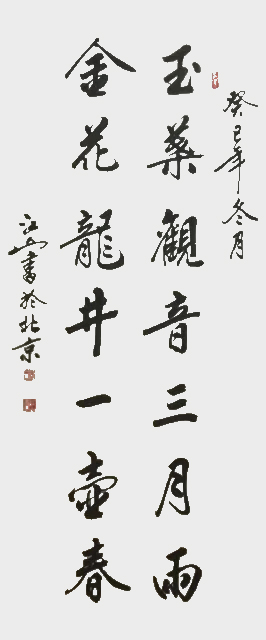 癸巳年冬月
玉葉觀音三月雨
金花龍井一壺春
江山書於北京